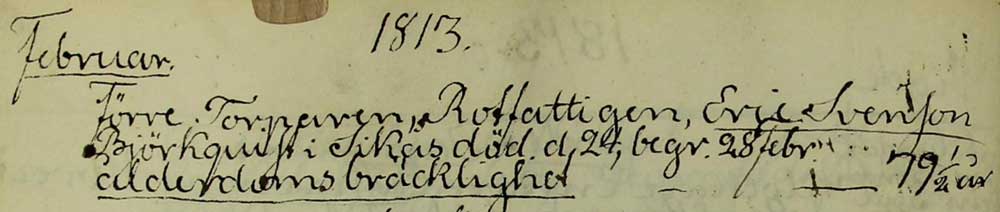 1813.
Februar.
Förre Torparen, Rotfattigen, Eric Svenson
Björkquist i Sikås död. d, 24, begr. 28 febr. 79 1/2 år
ålderdoms bräcklighet